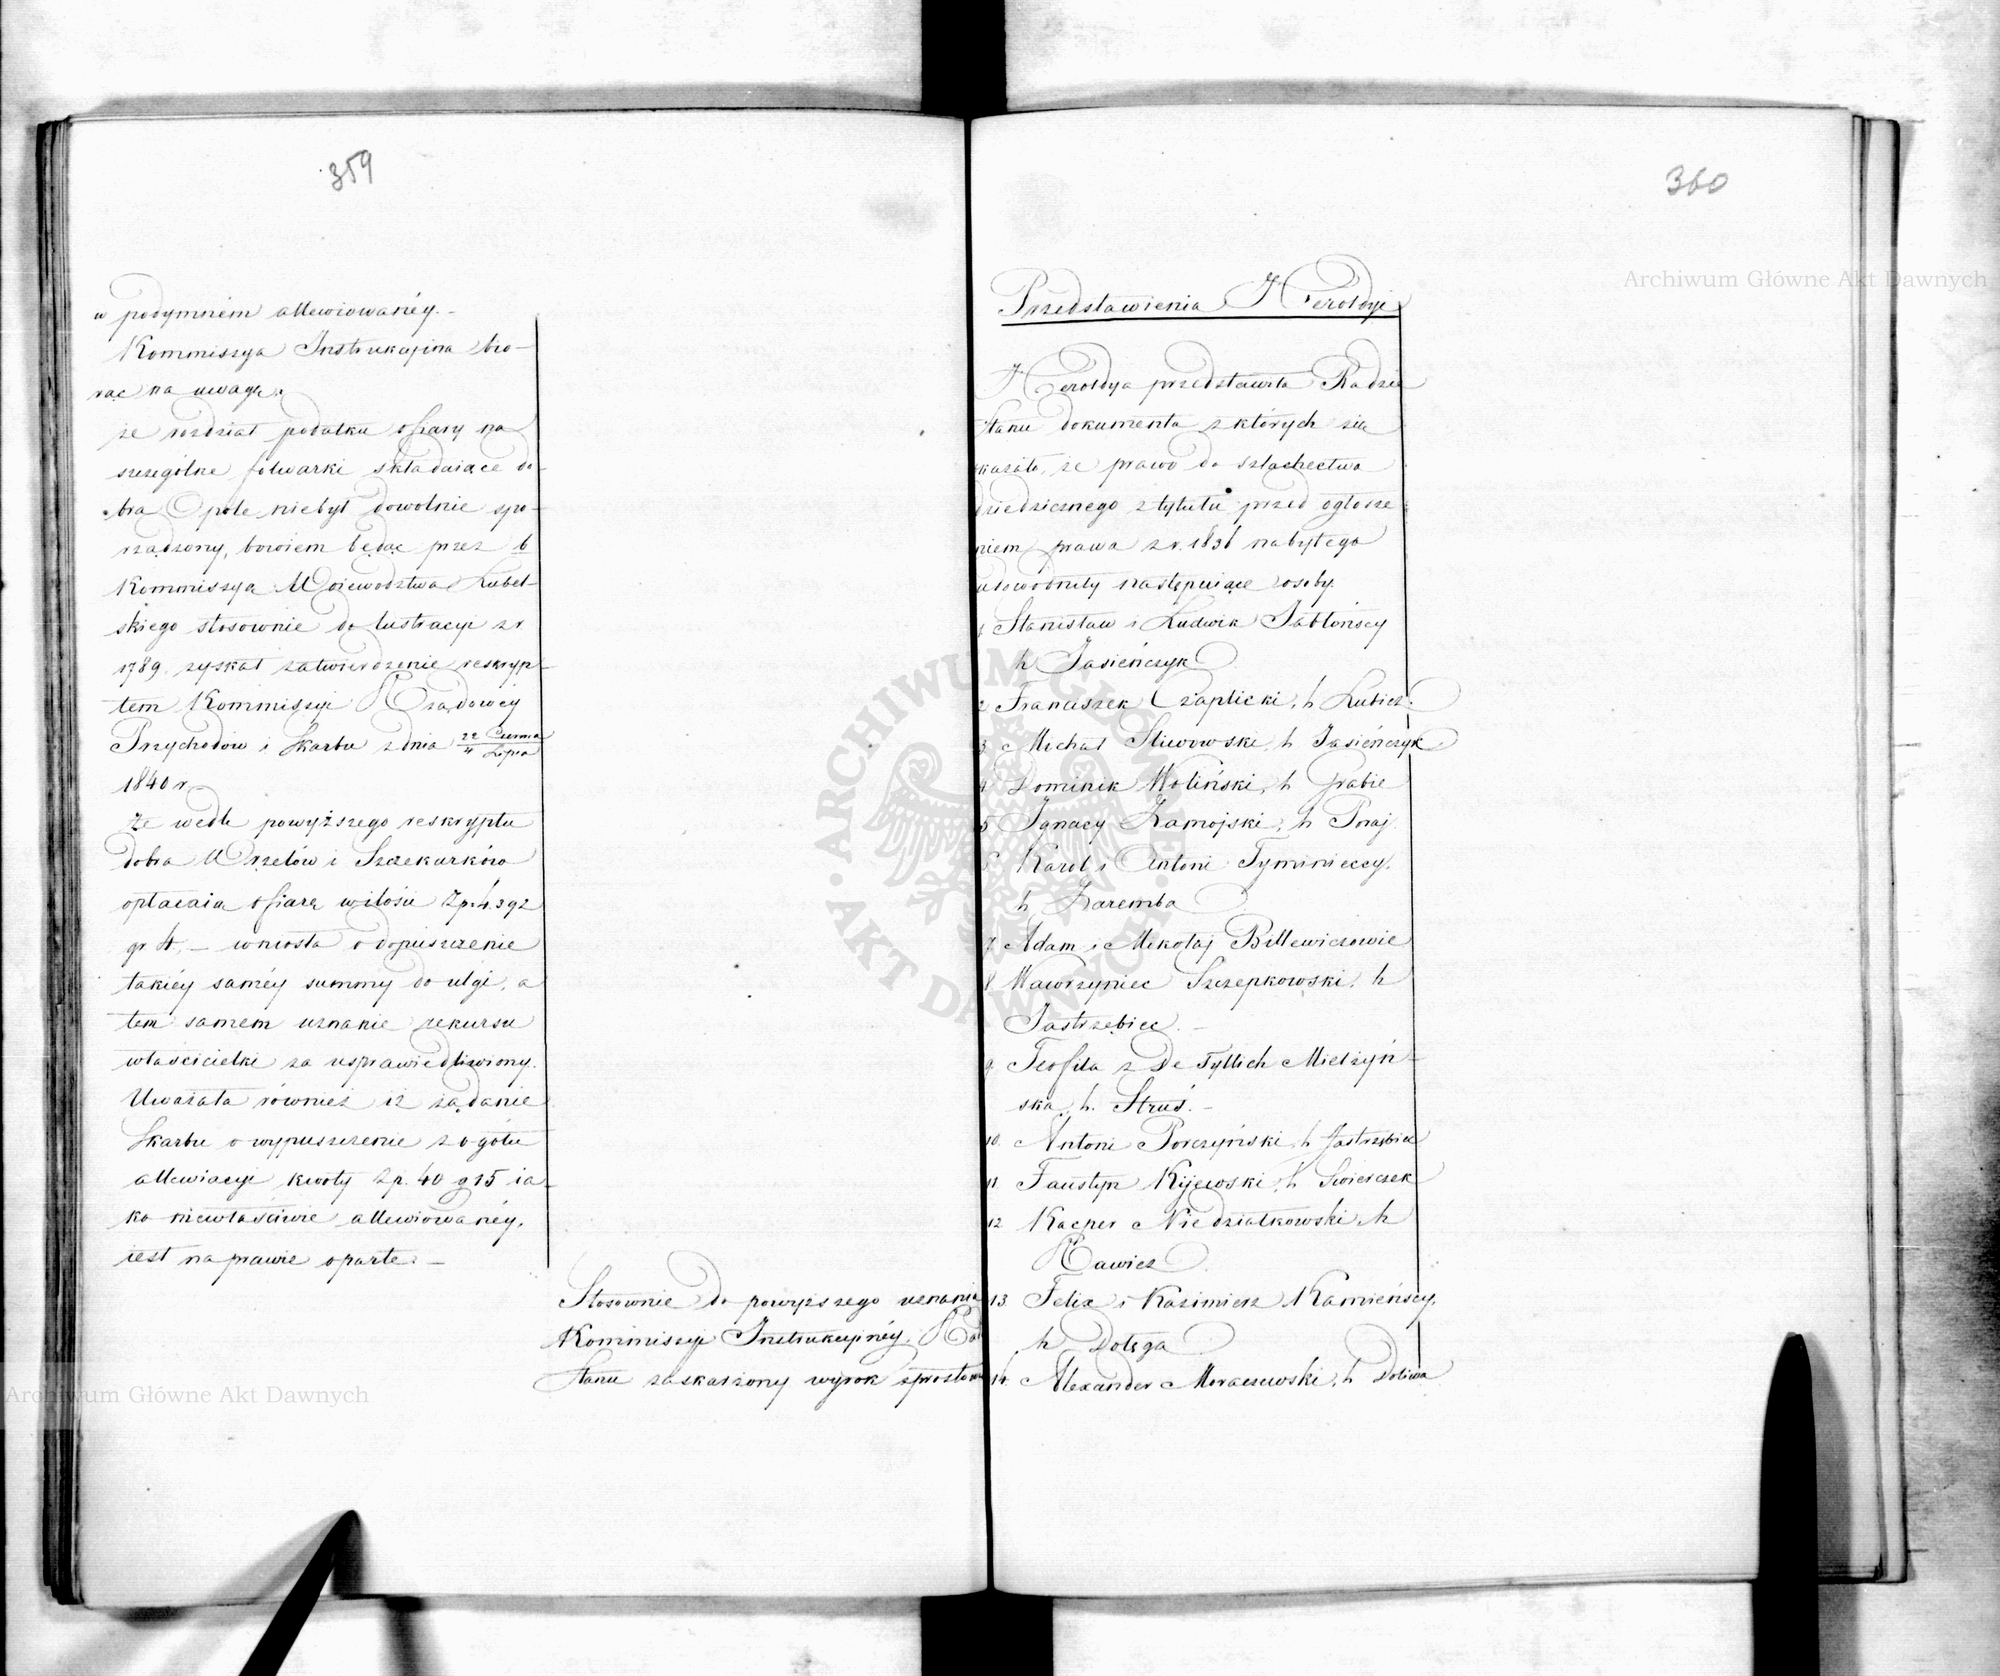 359
w podymném allewiowanéy. -
Kommissya Instrukcyina bio-
rąc na uwagę:
że rozdział podatku ofiary na
szczególne folwarki składaiące do-
bra Opole niebył dowolnie spo-
rządzony, bowiem będąc przez b
Kommissya Woiewodztwa Lubel-
skiego stosownie do lustracyi z r
1789. zyskał zatwierdzenie reskryp-
tem Kommissyi Rządowéy
Przychodów i Skarbu z dnia 22 Czerwca / 4 Lipca
1840 r.
Że wedle powyższego reskryptu
dobra Wrzelów i Szczekarków
opłacaia ofiarę w ilości Zp. 4.392
gr 4. - wniosła o dopuszczenie
takiéy saméy summy do ulgi, a
tem samem uznanie rekursu
właścicielki za usprawiedliwiony.
Uważała również iż żądanie
Skarbu o wypuszczenie z ogółu
allewiacyi kwoty Zp. 40 g 15 ia-
ko niewłaściwie allewiowanéy,
iest na prawie oparte. -
Stosownie do powyższego uznania
Kommissyi Instrukcyinéy, Ra
Stanu zaskarżony wyrok sprostow
360
Przedstawienia Heroldyi
Heroldya przedstawiła Radzie
Stanu dokumenta z których się
kazało, że prawo do szlachectwa
dziedzicznego z tytułu przed ogłosze
niem prawa z r. 1836 nabytego
udowodniły następuiące osoby.
1 Stanisław i Ludwik Jabłońscy
h Jasieńczyk
2 Franciszek Czaplicki, h Lubicz.
3 Michał Sliwowski, h Jasieńczyk
4 Dominik Woliński, h Grabie
5 Ignacy Zamojski, h Poraj.
6 Karol i Antoni Tyminieccy,
h Zaremba
7 Adam i Mikołaj Billewiczowie
8 Wawrzyniec Szczepkowski, h
Jastrzębiec. -
9 Teofila z De Tyllich Mielżyń-
ska, h. Struś. -
10. Antoni Porczyński, h Jastrzębiec
11 Faustyn Kijewski, h Swierczek
12 Kacper Niedziałkowski, h
Rawicz
13. Felix i Kazimierz Kamieńscy,
h Dołęga
14. Alexander Moraczewski, h Doliwa
Archiwum Główne Akt Dawnych
Archiwum Główne Akt Dawnych
ARCHIWUM GŁÓWNE AKT DAWNYCH